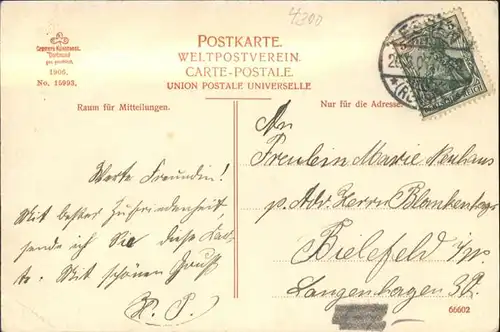 4300
POSTKARTE.
WELTPOSTVEREIN.
CARTE-POSTALE.
UNION POSTALE UNIVERSELLE
Cramers Kunstanst.
Dortmund
ges. geschützt.
1906.
No. 15993.
Raum für Mitteilungen.
Nur für die Adresse.
ESSEN
Werte Freundin!
Mit bester Zufriedenheit,
sende ich Sie diese Kar-
te. Mit schönem Gruß
An
Freulein Marie Neuhaus
p. Adr. Herrn Blankenhage
Bielefeld i/W
Langenhagen 39.
66602